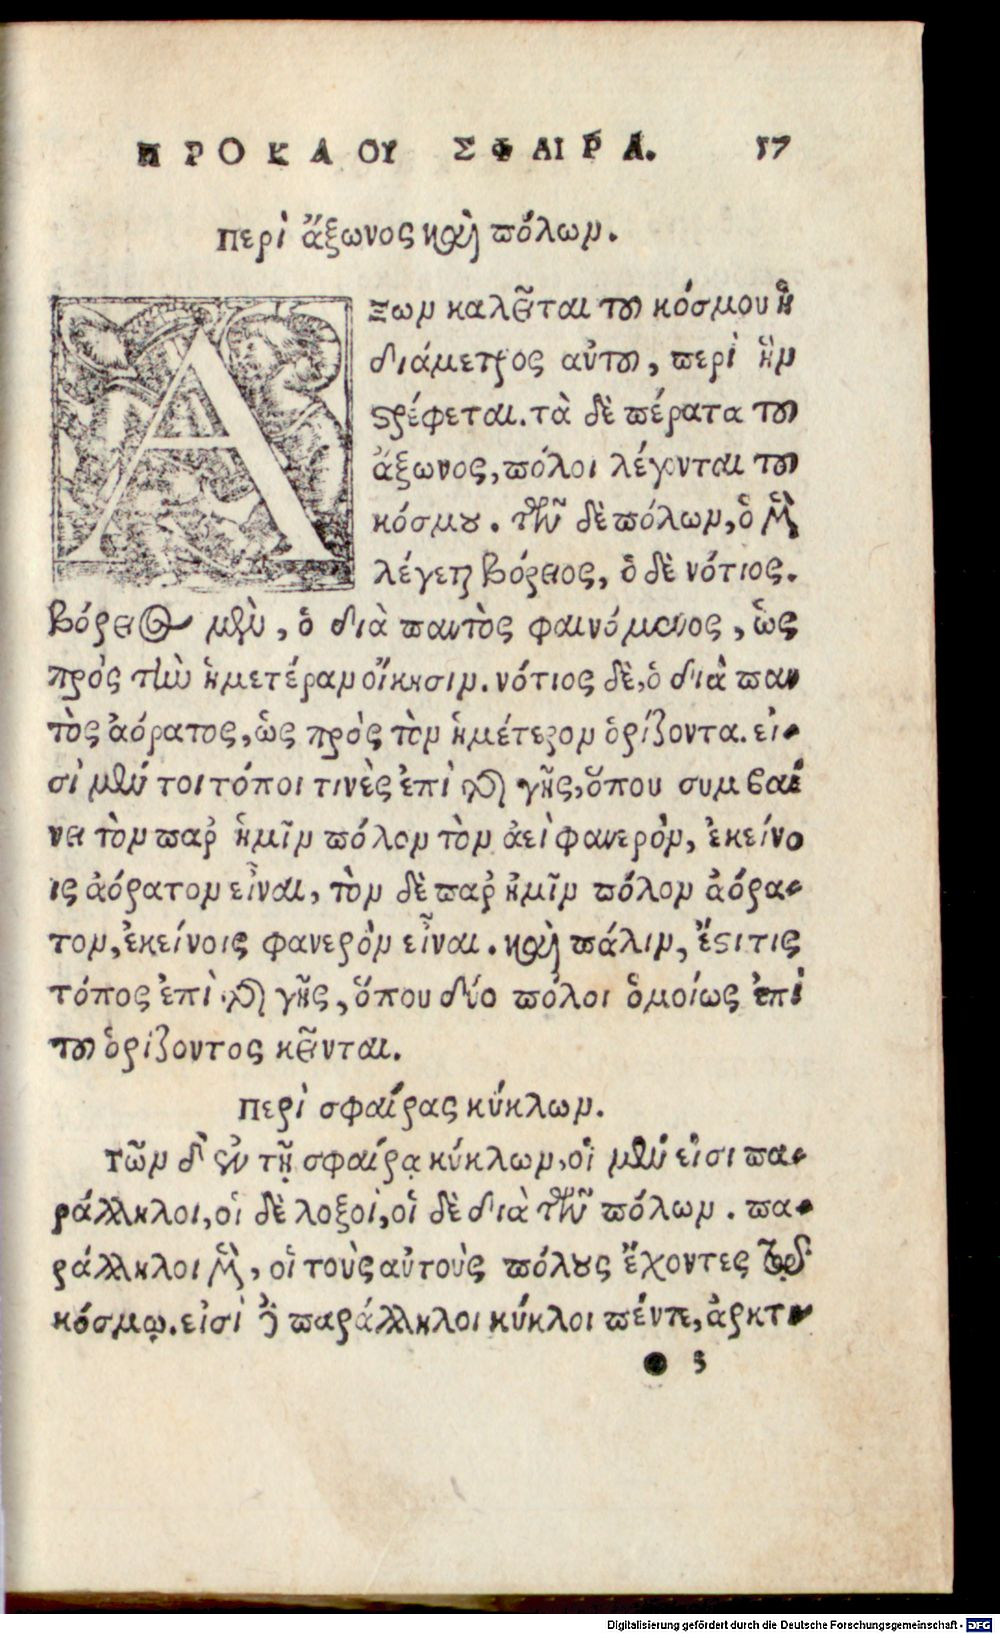 ΠΡΟΚΛΟΥ ΣΦΑΙΡΑ. 57
Περὶ ἄξωνος καὶ πόλων.
Αξων καλεῖται τοῦ κόσμου ἡ
διάμετρος αὐτοῦ, περὶ ἣν
στρέφεται. τὰ δὲ πέρατα τοῦ
ἄξωνος, πόλοι λέγονται τοῦ
κόσμου. τῶν δὲ πόλων, ὁ μὲν
λέγεται βόρειος, ὁ δὲ νότιος.
βόρειος μὲν, ὁ διὰ παντὸς φαινόμενος, ὡς
πρὸς τὴν ἡμετέραν οἴκησιν. νότιος δὲ, ὁ διὰ παν
τὸς ἀόρατος, ὡς πρὸς τὸν ἡμέτερον ὁρίζοντα. εἰ-
σὶ μέν τοι τόποι τινὲς ἐπὶ τῆς γῆς, ὅπου συμβαί
νει τὸν παρ' ἡμῖν πόλον τὸν ἀεὶ φανερὸν, ἐκείνο
ις ἀόρατον εἶναι, τὸν δὲ παρ' ἡμῖν πόλον ἀόρα-
τον, ἐκείνοις φανερὸν εἶναι. καὶ πάλιν, ἔστι τις
τόπος ἐπὶ τῆς γῆς, ὅπου δύο πόλοι ὁμοίως ἐπὶ
τοῦ ὁρίζοντος κεῖνται.
Περὶ σφαίρας κύκλων.
Τῶν δ' ἐν τῇ σφαίρᾳ κύκλων, οἱ μέν εἰσι πα-
ράλληλοι, οἱ δὲ λοξοὶ, οἱ δὲ διὰ τῶν πόλων. πα-
ράλληλοι μὲν, οἱ τοὺς αὐτοὺς πόλους ἔχοντες τῷ
κόσμῳ. εἰσὶ δὲ παράλληλοι κύκλοι πέντε, ἀρκτι-
5
Digitalisierung gefördert durch die Deutsche Forschungsgemeinschaft - DFG